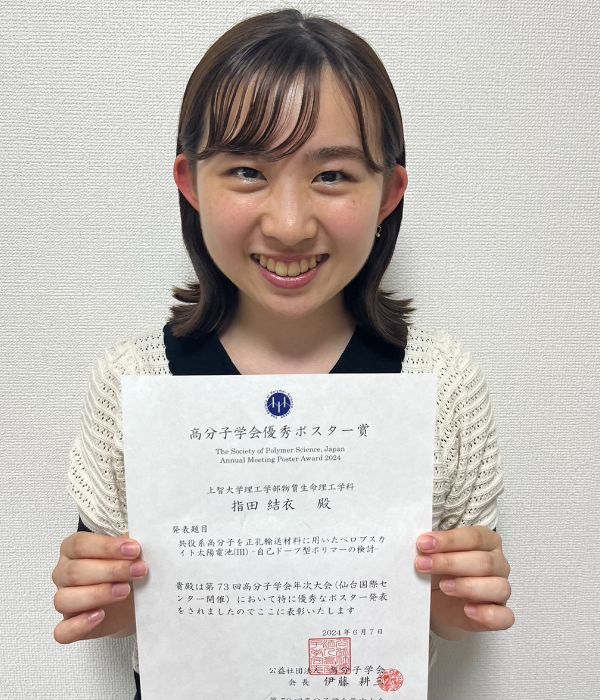 高分子学会優秀ポスター賞
The Society of Polymer Science, Japan
Annual Meeting Poster Award 2024
上智大学理工学部物質生命理工学科
指田 結衣 殿
発表題目
共役系高分子を正孔輸送材料に用いたペロブスカ
イト太陽電池(III) -自己ドープ型ポリマーの検討-
貴殿は第73回高分子学会年次大会(仙台国際セ
ンター開催)において特に優秀なポスター発表
をされましたのでここに表彰いたします
2024年6月7日
公益社団法人 高分子学会
会長 伊藤 耕三